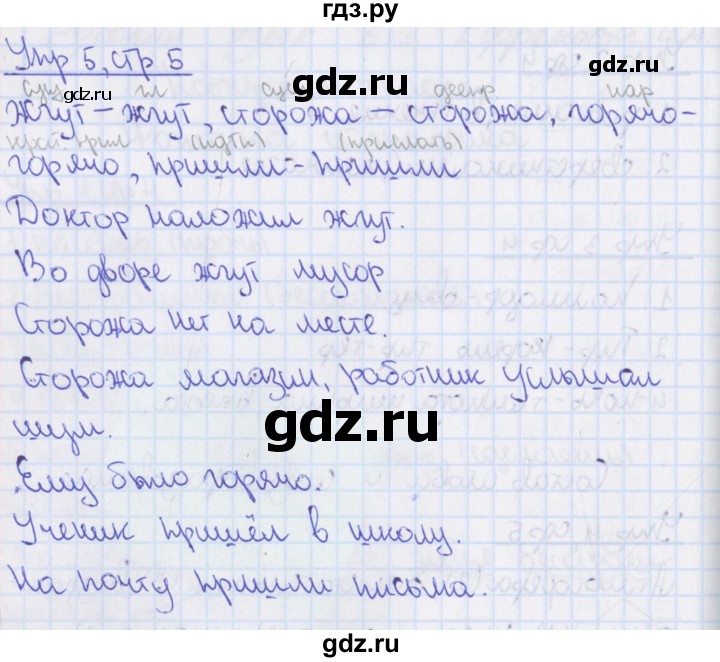 гдз.ру
Упр 5, стр 5
gdz.ru
сущ гл сущ деепр нар
gdz.ru
жгут – жгут, сторожа – сторожа, горячо-
крат. прил (идти) (прислать)
горячо, пришли – пришли
Доктор наложил жгут.
Во дворе жгут мусор
Сторожа нет на месте.
Сторожа магазин, работник услышал
gdz.ru
шум.
Ему было горячо.
Ученик пришёл в школу.
На почту пришли письма.
gdz.ru
gdz.ru